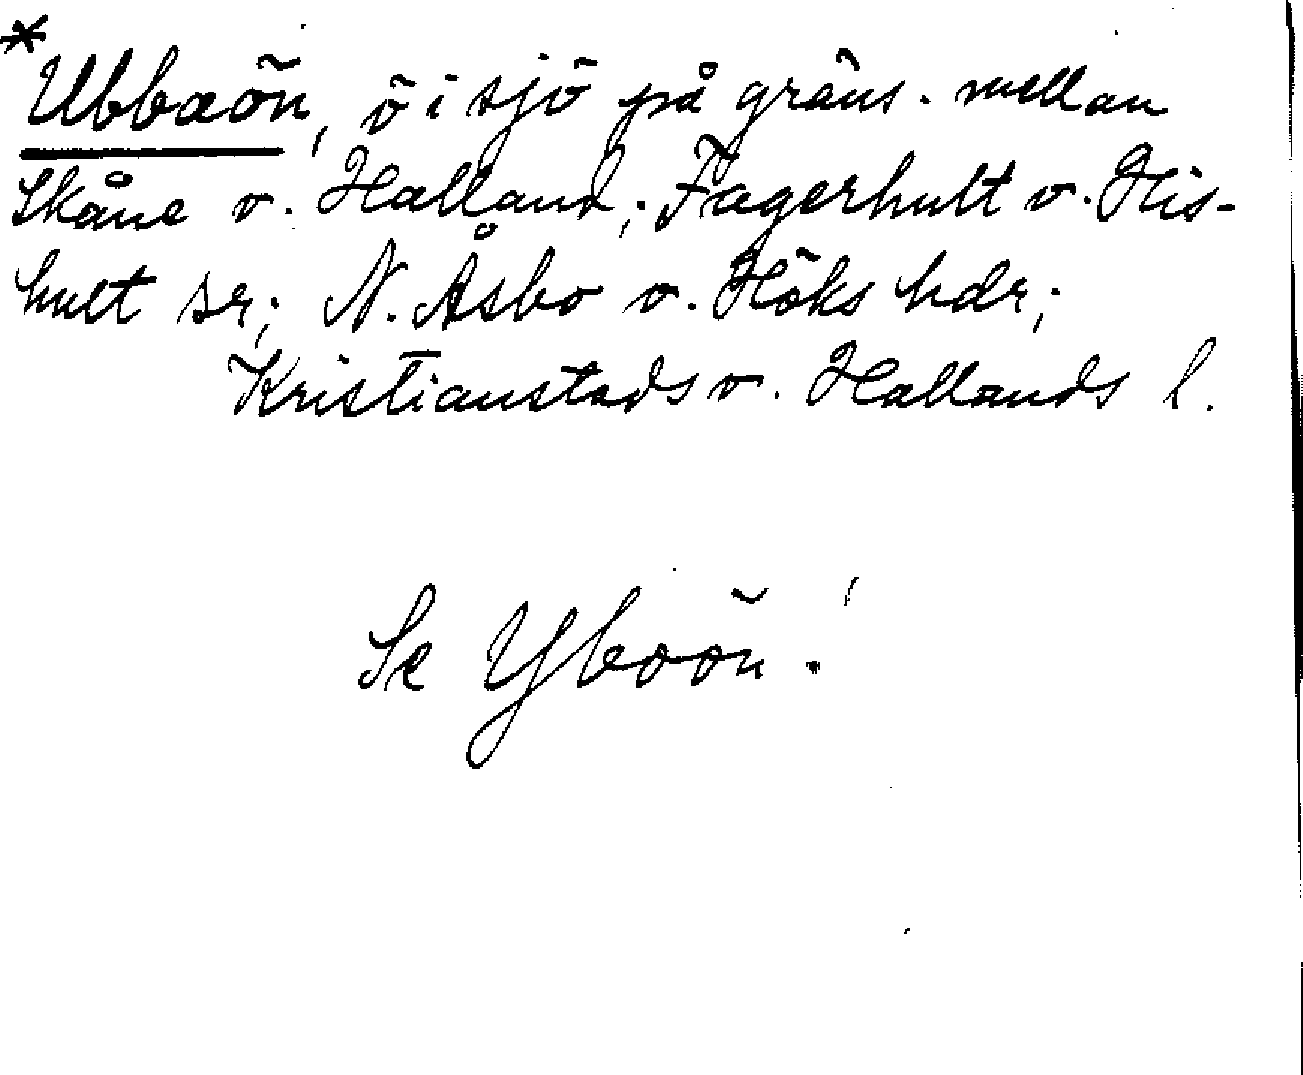 *Ubbaön, ö i sjö på gräns. mellan
Skåne o. Halland; Fagerhult o. His-
hult sr; N. Åsbo o. Höks hdr;
Kristianstads o. Hallands l.
Se Yboön!